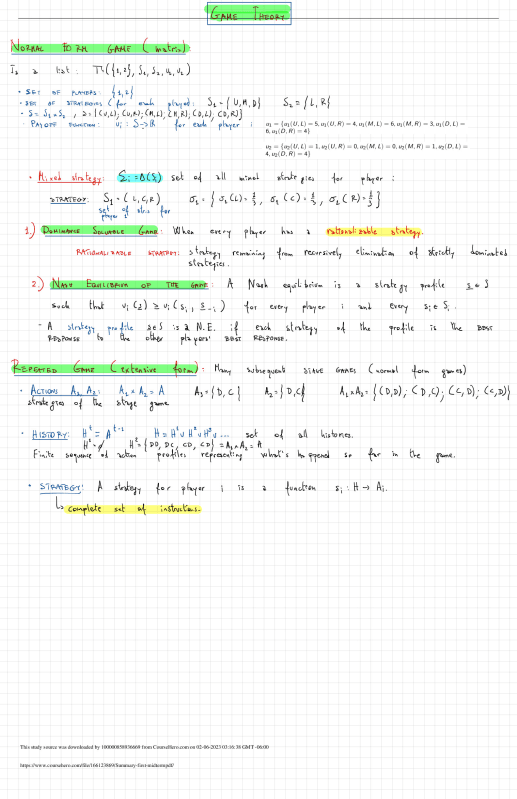 GAME THEORY
NORMAL FORM GAME (matrix):
Is a list: Π({1,2}, S₁, S₂, u₁, u₂)
• SET OF PLAYERS: {1,2}
• SET OF STRATEGIES (for each player): S₁ = {U,M,D} S₂ = {L,R}
• S = S₁×S₂, S = {(U,L); (U,R); (M,L); (M,R); (D,L); (D,R)}
• PAYOFF FUNCTION: uᵢ: S→ℝ for each player i u₁ = {u₁(U, L) = 5, u₁(U, R) = 4, u₁(M, L) = 6, u₁(M, R) = 3, u₁(D, L) =
6, u₁(D, R) = 4}
u₂ = {u₂(U, L) = 1, u₂(U, R) = 0, u₂(M, L) = 0, u₂(M, R) = 1, u₂(D, L) =
4, u₂(D, R) = 4}
• Mixed strategy: Σᵢ = Δ(Sᵢ) set of all mixed strategies for player i
STRATEGY: S₁ = (L,C,R) σ₁ = {σ₁(L) = 1/3, σ₁(C) = 1/3, σ₁(R) = 1/3}
set of for
player 1
1.) DOMINANCE SOLVABLE GAME: When every player has a rationalizable strategy.
RATIONALIZABLE STRATEGY: strategy remaining from recursively elimination of strictly dominated
strategies.
2.) NASH EQUILIBRIUM OF THE GAME: A Nash equilibrium is a strategy profile s ∈ S
such that uᵢ(s) ≥ uᵢ(sᵢ, s₋ᵢ) for every player i and every sᵢ ∈ Sᵢ.
• A strategy profile s∈S is a N.E. if each strategy of the profile is the BEST
RESPONSE to the other players' BEST RESPONSE.
REPEATED GAME (extensive form): Many subsequent STAGE GAMES (normal form games)
• ACTIONS A₁, A₂: A₁ × A₂ = A A₁ = {D, C} A₂ = {D, C} A₁×A₂ = {(D,D); (D,C); (C,D); (C,C)}
strategies of the stage game
• HISTORY: Hᵗ = Aᵗ⁻¹ H = H¹∪H²∪H³∪... set of all histories.
H¹ = ∅ H² = {DD, DC, CD, CD} = A₁×A₂ = A
Finite sequence of action profiles representing what's happened so far in the game.
• STRATEGY: A strategy for player i is a function sᵢ: H → Aᵢ.
↳ complete set of instructions.
This study source was downloaded by 100000850936669 from CourseHero.com on 02-06-2023 03:16:38 GMT -06:00
https://www.coursehero.com/file/166123869/Summary-first-midtermpdf/